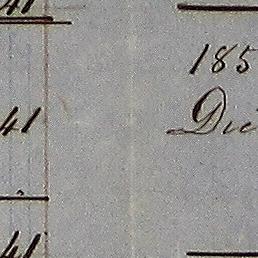 41
185
41
Dic
41